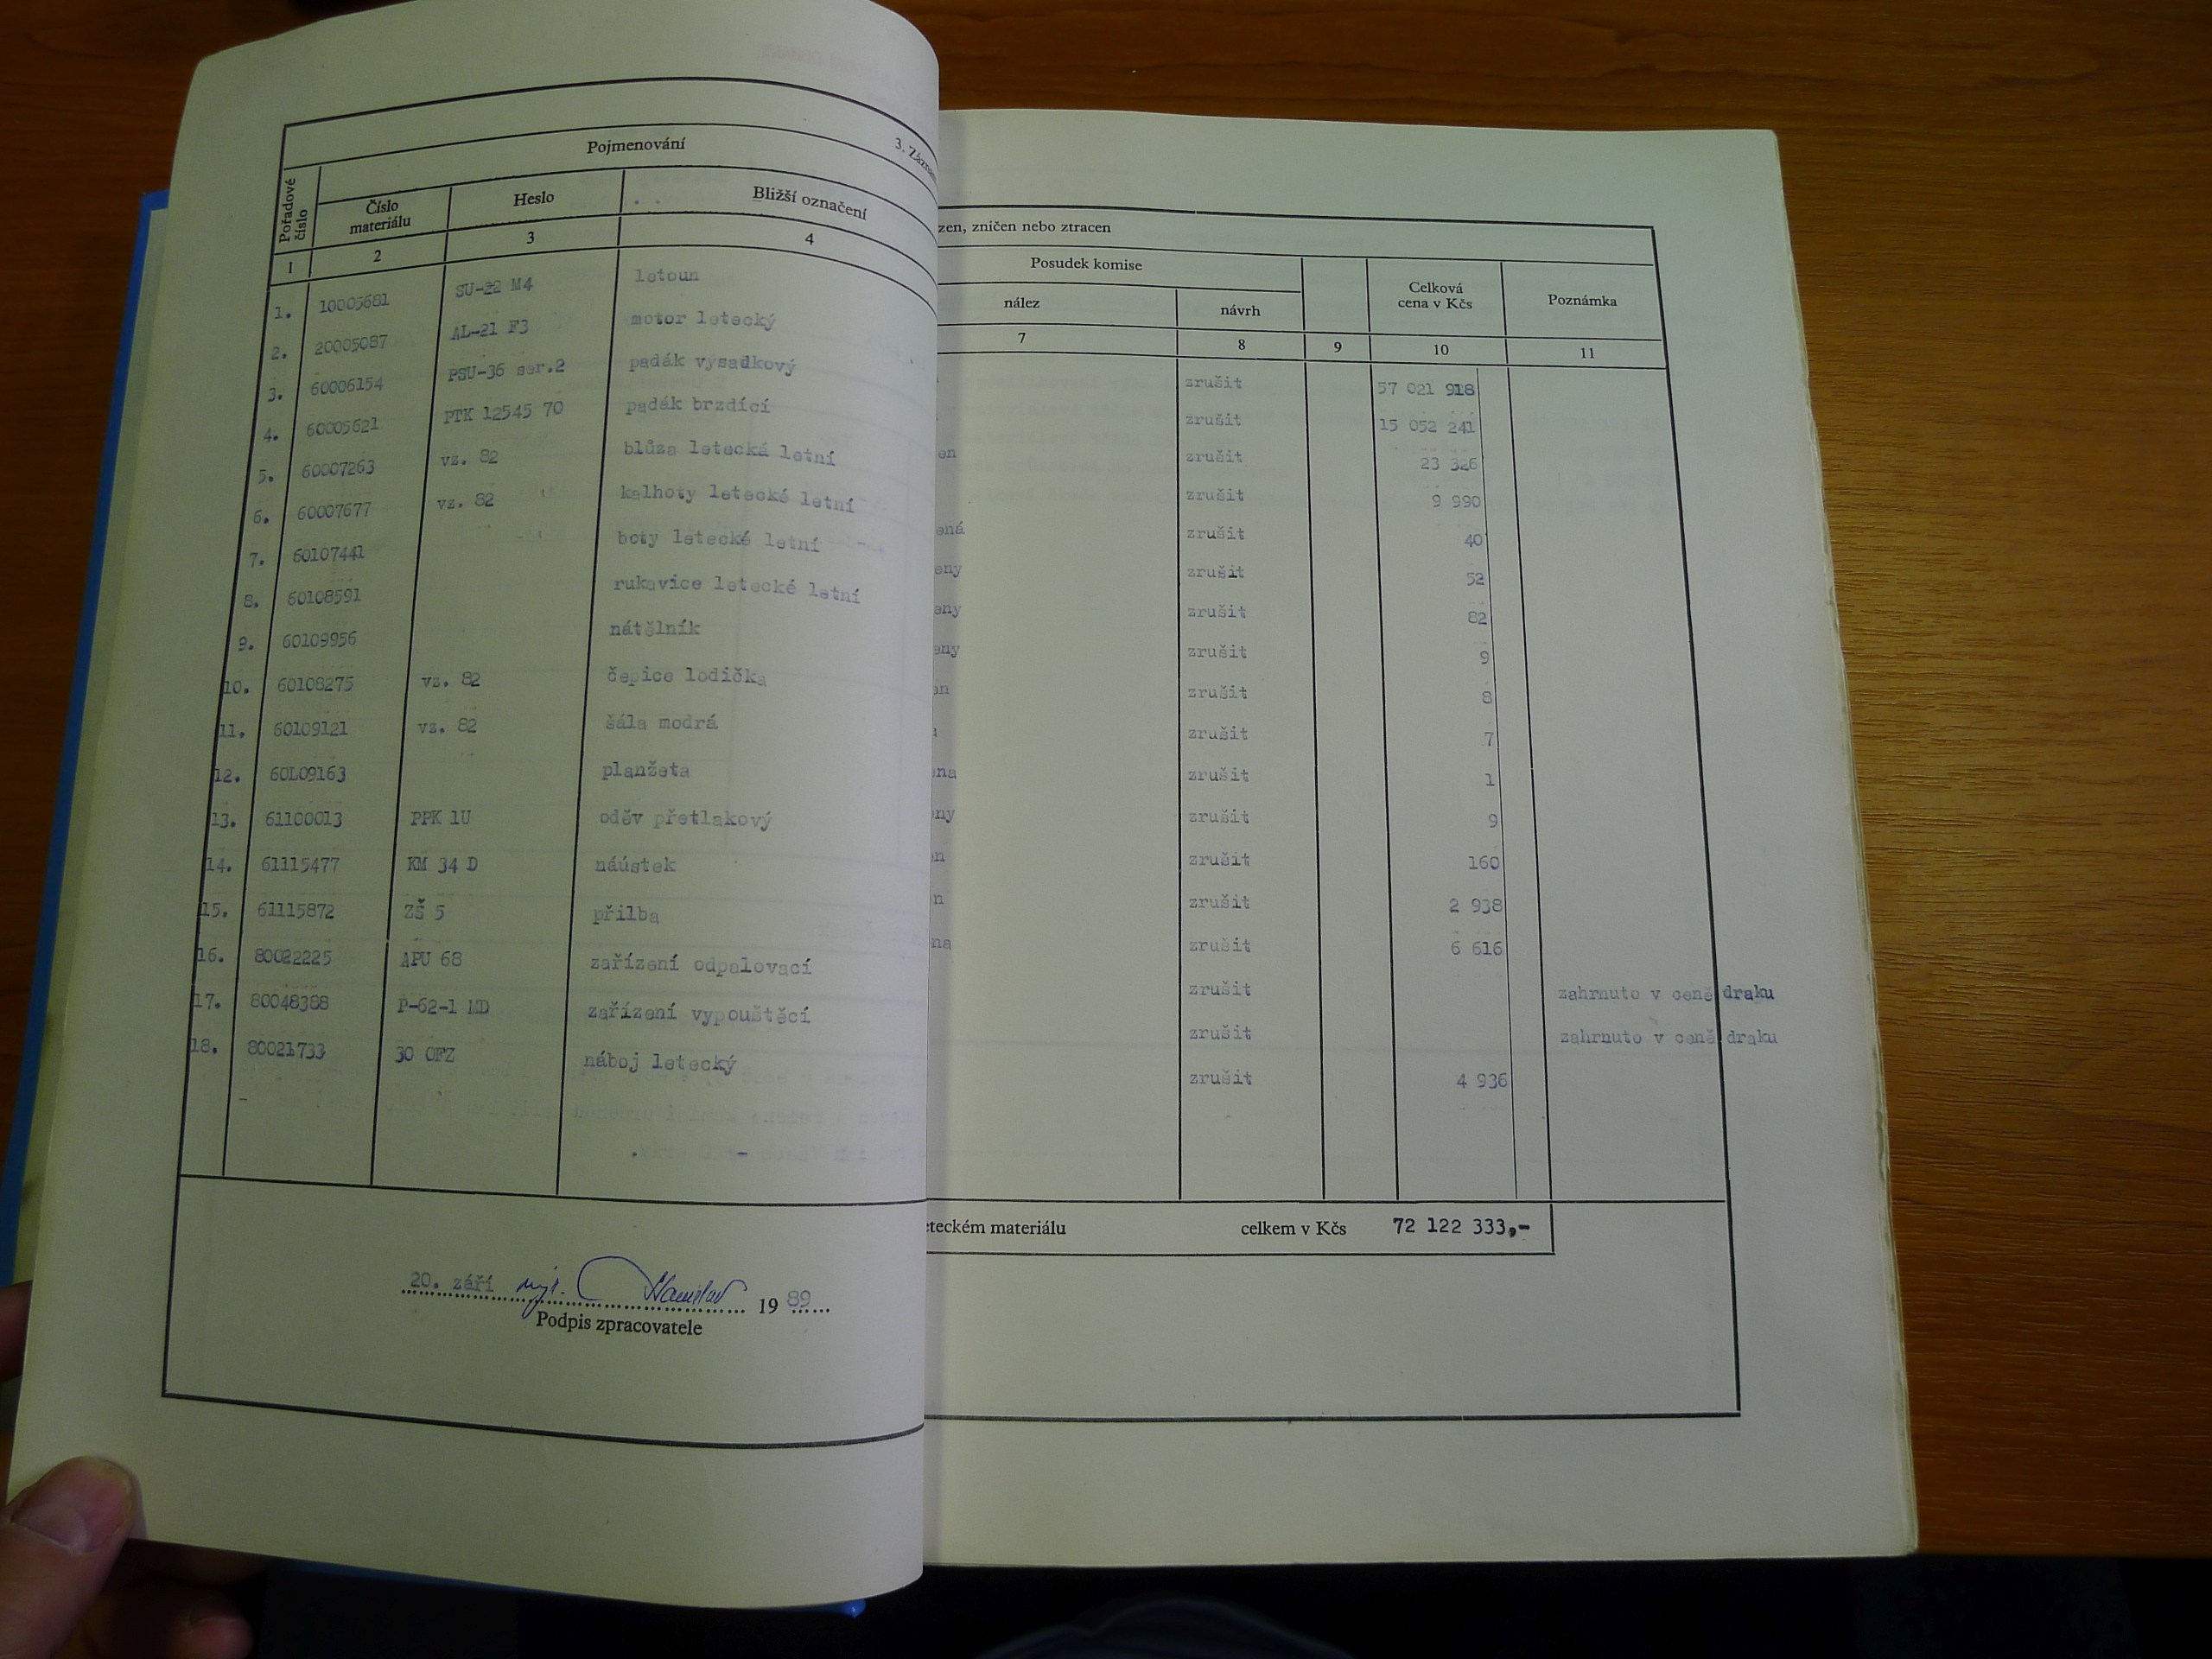 3. Zázna
Pojmenování
Pořadové číslo
Číslo materiálu
Heslo
Bližší označení
1 2 3 4
1. 10005681 SU-22 M4 letoun
2. 20005087 AL-21 F3 motor letecký
3. 60006154 PSU-36 ser.2 padák výsadkový
4. 60005621 PTK 12545 70 padák brzdící
5. 60007263 vz. 82 blůza letecká letní
6. 60007677 vz. 82 kalhoty letecké letní
7. 60107441 boty letecké letní
8. 60108591 rukavice letecké letní
9. 60109956 nátělník
10. 60108275 vz. 82 čepice lodička
11. 60109121 vz. 82 šála modrá
12. 60L09163 planžeta
13. 61100013 PPK 1U oděv přetlakový
14. 61115477 KM 34 D náústek
15. 61115872 ZŠ 5 přilba
16. 80022225 APU 68 zařízení odpalovací
17. 80048388 P-62-1 MD zařízení vypouštěcí
18. 80021733 30 OFZ náboj letecký
20. září mjr. 19 89
Podpis zpracovatele
zen, zničen nebo ztracen
Posudek komise
nález
návrh
Celková cena v Kčs
Poznámka
7 8 9 10 11
zrušit 57 021 918
zrušit 15 052 241
en zrušit 23 326
zrušit 9 990
ená zrušit 40
eny zrušit 52
eny zrušit 82
eny zrušit 9
en zrušit 8
zrušit 7
na zrušit 1
ny zrušit 9
n zrušit 160
n zrušit 2 938
na zrušit 6 616
zrušit zahrnuto v ceně draku
zrušit zahrnuto v ceně draku
zrušit 4 936
eteckém materiálu celkem v Kčs 72 122 333,-